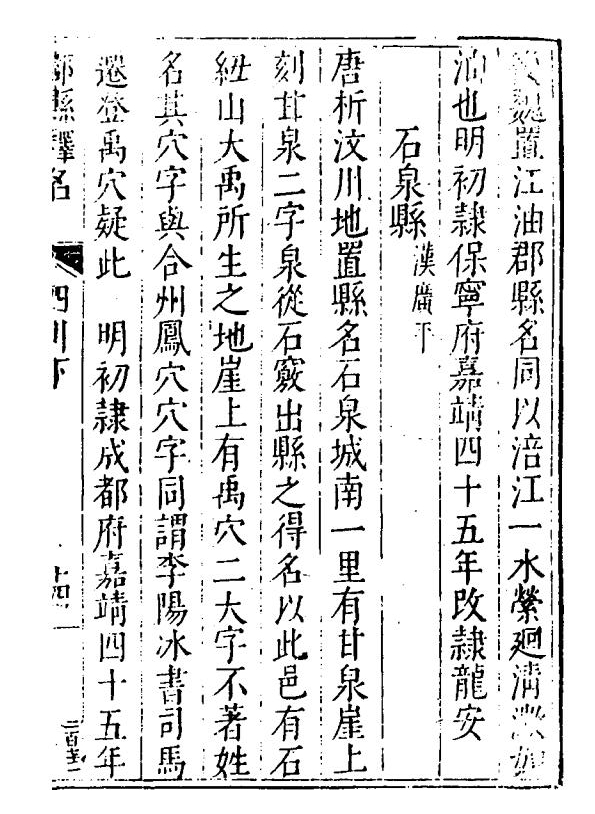 魏置江油郡縣名同以涪江一水縈迴清澈如
油也明初隷保寧府嘉靖四十五年改隷龍安
石泉縣漢廣
唐析汶川地置縣名石泉城南一里有甘泉崖上
刻甘泉二字泉從石竅出縣之得名以此邑有石
紐山大禹所生之地崖上有禹穴二大字不著姓
名其穴字與合州鳳穴穴字同謂李陽冰書司馬
遷登禹穴疑此 明初隷成都府嘉靖四十五年
郡縣釋名 四川下 十四